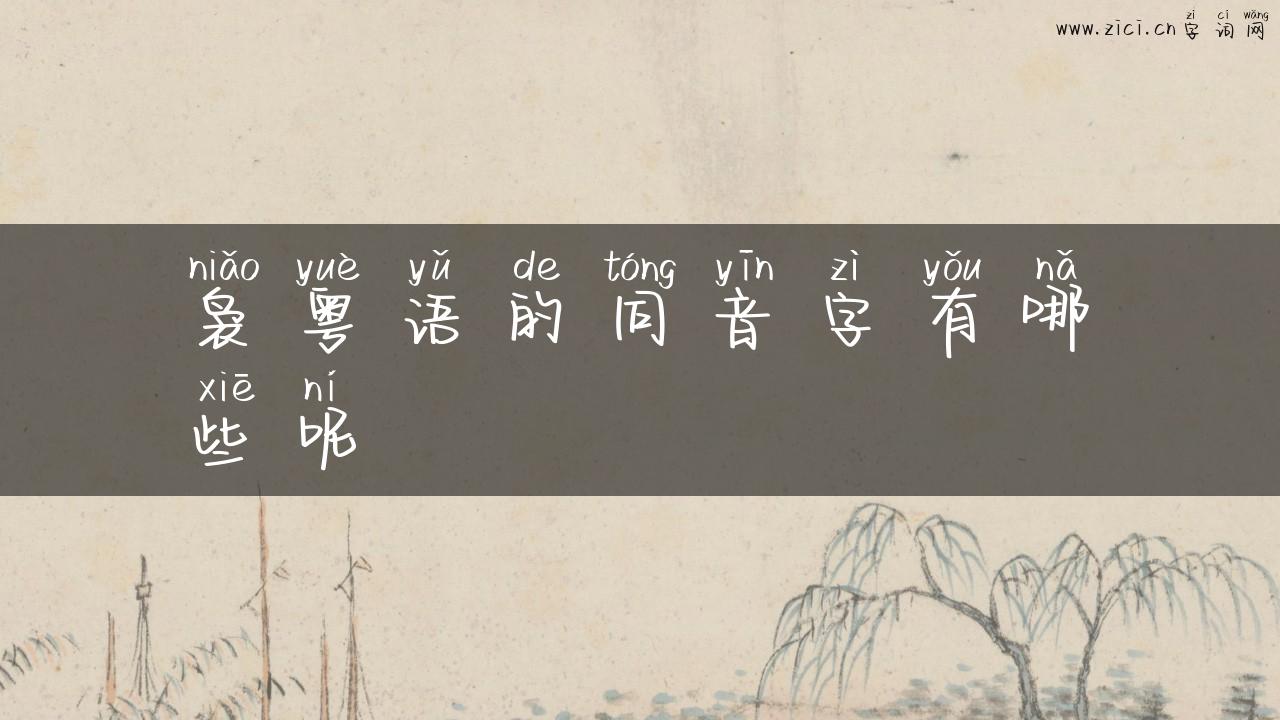 zì cí wǎng
www.zici.cn 字词网
niǎo yuè yǔ de tóng yīn zì yǒu nǎ
袅粤语的同音字有哪
xiē ní
些呢